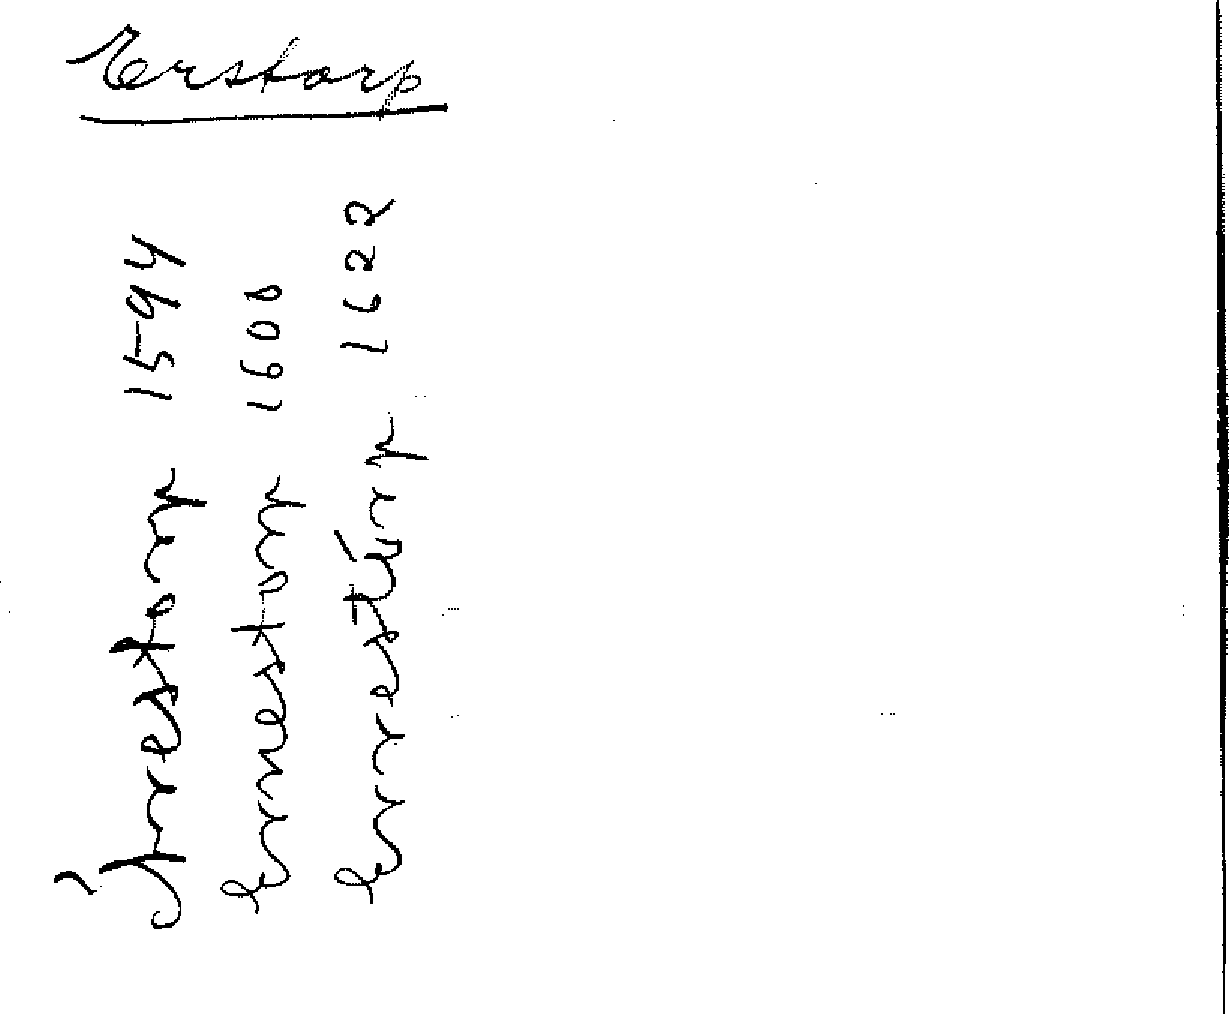 Erstorp
Jrestorp 1594
errestorp 1600
errestúrp 1622